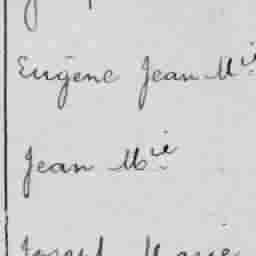 Eugène Jean Mie
Jean Mie
Joseph Marie